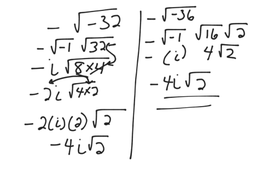 - √-32
- √-1 √32
- i √8×4
- 2i √4×2
- 2(i)(2) √2
- 4i √2
- √-36
- √-1 √16 √2
- (i) 4 √2
- 4i √2